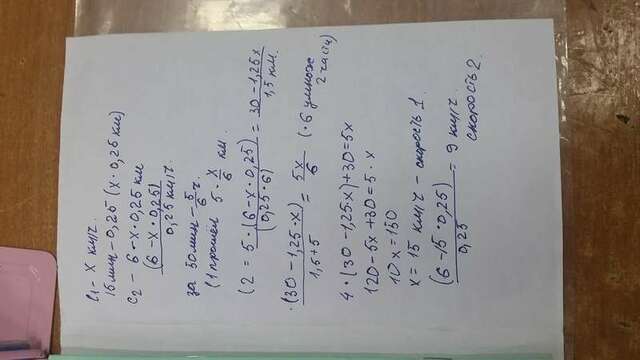 С1 - х км/ч.
15 мин - 0,25 (х · 0,25 км)
С2 - 6 - х · 0,25 км
(6 - х · 0,25)
0,25 км/ч.
за 50 мин - 5/6 ч.
С1 прошел 5 · х/6 км.
С2 = 5 · (6 - х · 0,25) / (0,25 · 6) = 30 - 1,25х / 1,5 км.
(30 - 1,25 · х) / 1,5 + 5 = 5х/6 (· 6 умнож
2 части)
4 · (30 - 1,25 · х) + 30 = 5х
120 - 5х + 30 = 5 · х
10х = 150
х = 15 км/ч - скорость 1.
(6 - 15 · 0,25) / 0,25 = 9 км/ч.
скорость 2.